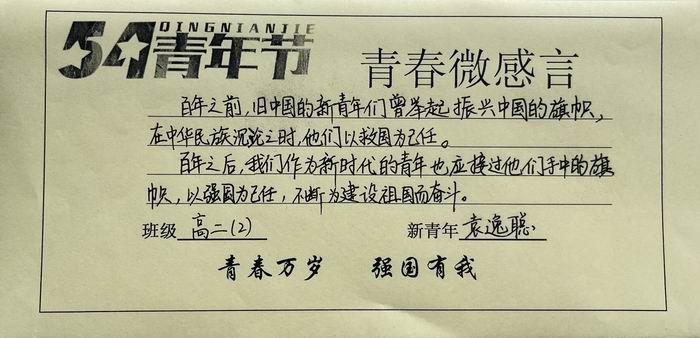 QINGNIANJIE
54青年节
青春微感言
百年之前,旧中国的新青年们曾举起振兴中国的旗帜,
在中华民族沉沦之时,他们以救国为己任。
百年之后,我们作为新时代的青年也应接过他们手中的旗
帜,以强国为己任,不断为建设祖国而奋斗。
班级 高二(2) 新青年 袁逸聪
青春万岁 强国有我